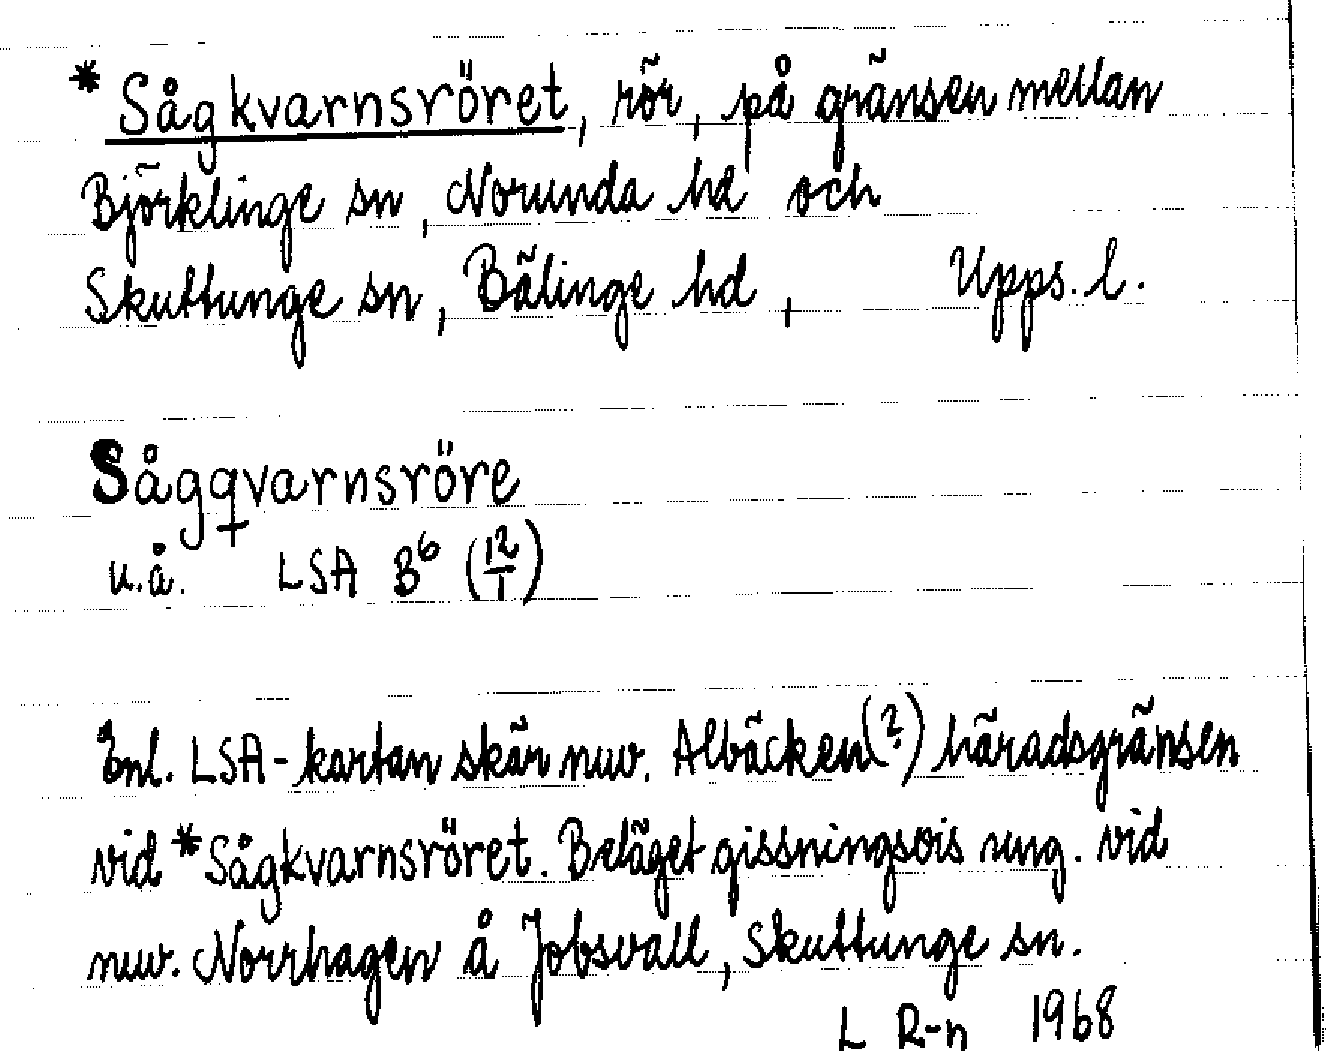 * Sågkvarnsröret, rör, på gränsen mellan
Björklinge sn, Norunda hd och
Skuttunge sn, Bälinge hd, Upps. l.
Sågqvarnsröre
u.å. LSA B⁶ (12/1)
Enl. LSA-kartan skär nuv. Albäcken(?) häradsgränsen
vid *Sågkvarnsröret. Beläget gissningsvis ung. vid
nuv. Norrhagen å Jobsvall, Skuttunge sn.
L R-n 1968